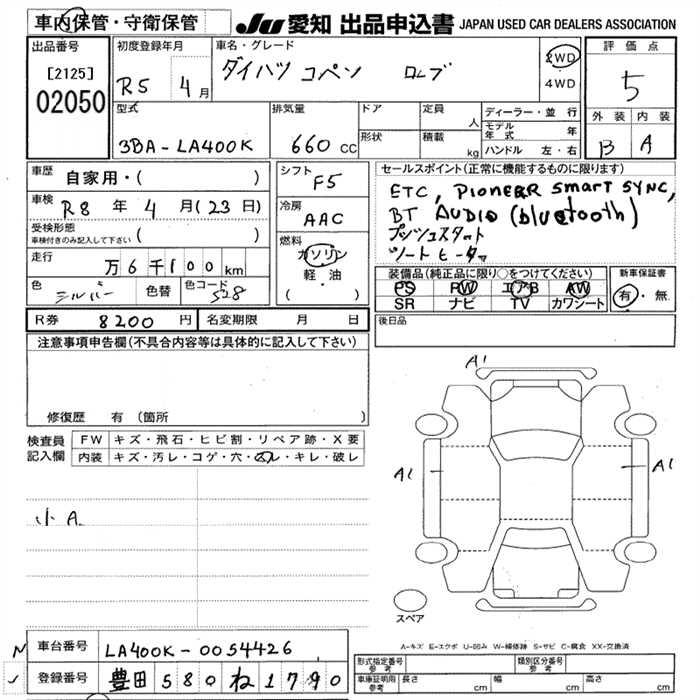 車内保管・守衛保管
JU 愛知 出品申込書 JAPAN USED CAR DEALERS ASSOCIATION
出品番号
[2125]
02050
初度登録年月
R5 4月
車名・グレード
ダイハツ コペン ローブ
2WD
4WD
評価点
5
外装 内装
B A
型式
3BA-LA400K
排気量
660 cc
ドア
形状
定員 人
積載 kg
ディーラー・並行
モデル年式 年
ハンドル 左・右
車歴
自家用・( )
車検
R8 年 4 月 (23 日)
受検形態
車検付きのみ記入して下さい ( )
走行
万 6 千 100 km
色 シルバー 色替 色コード S28
シフト
F5
冷房
AAC
燃料
ガソリン
軽・油
( )
セールスポイント(正常に機能するものに限ります)
ETC, PIONEER smart SYNC,
BT AUDIO (bluetooth)
プッシュスタート
シートヒーター
装備品(純正品に限り○をつけてください)
PS PW エアB AW
SR ナビ TV カワシート
新車保証書
有・無
R券 8200 円 名変期限 月 日
後日品
注意事項申告欄(不具合内容等は具体的に記入して下さい)
修復歴 有(箇所
検査員記入欄
FW キズ・飛石・ヒビ割・リペア跡・X要
内装 キズ・汚レ・コゲ・穴・スレ・キレ・破レ
小A
A1
A1
A1
スペア
A-キズ E-エクボ U-凹み W-補修跡 S-サビ C-腐食 XX-交換済
車台番号 LA400K-0054426
登録番号 豊田 580 ね 1790
形式指定番号 参考
類別区分番号 参考
車庫証明用 参考 長さ cm 幅 cm 高さ cm